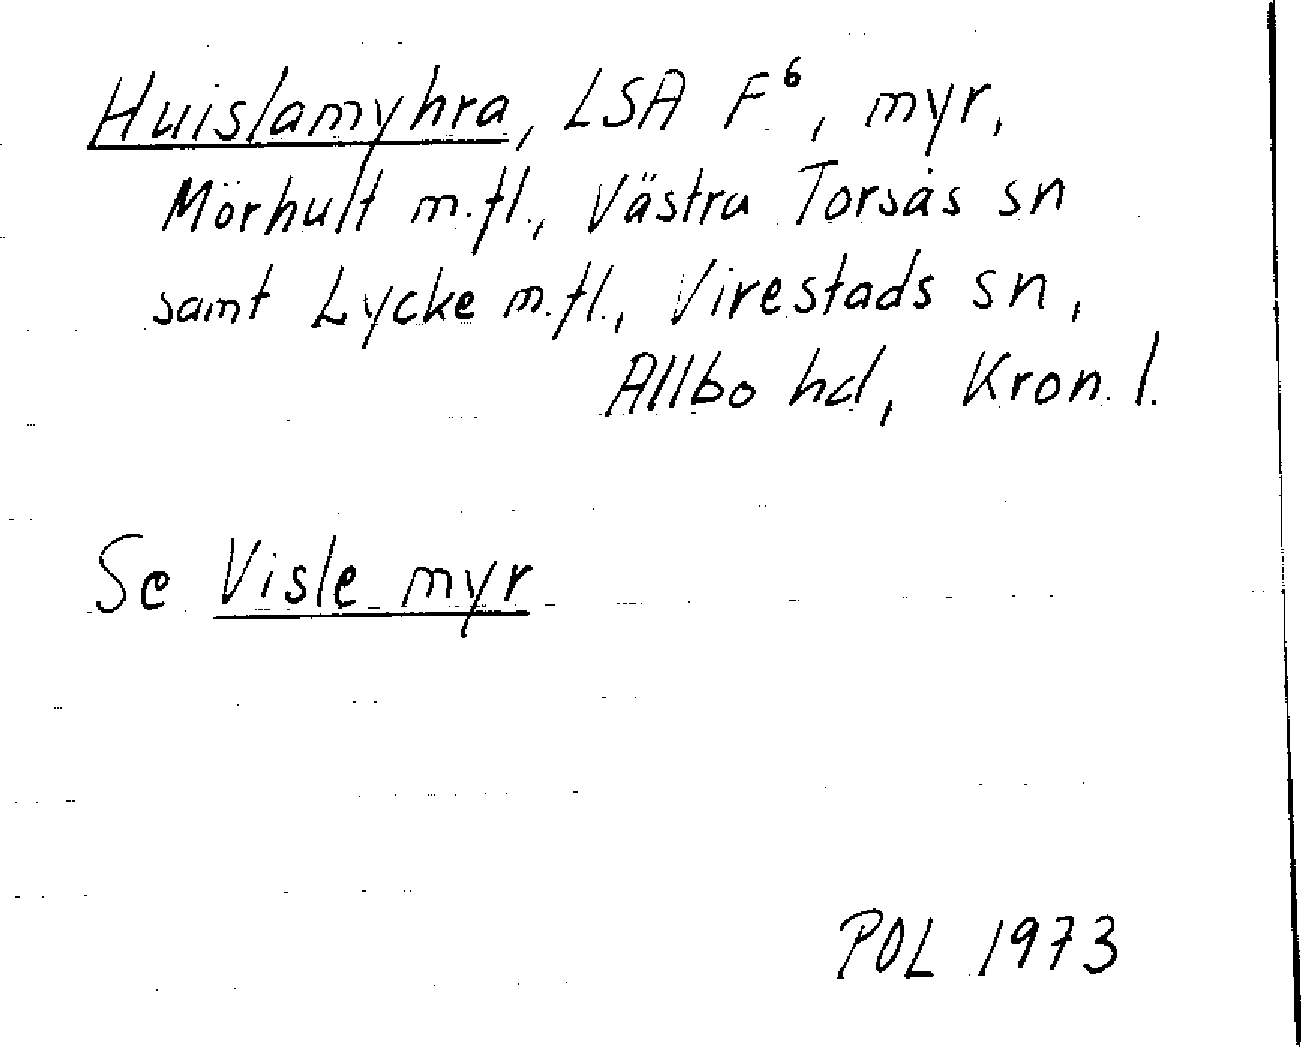 Huislamyhra, LSA F⁶, myr,
Mörhult m.fl., Västra Torsås sn
samt Lycke m.fl., Virestads sn,
Allbo hd, Kron. l.
Se Visle myr
POL 1973